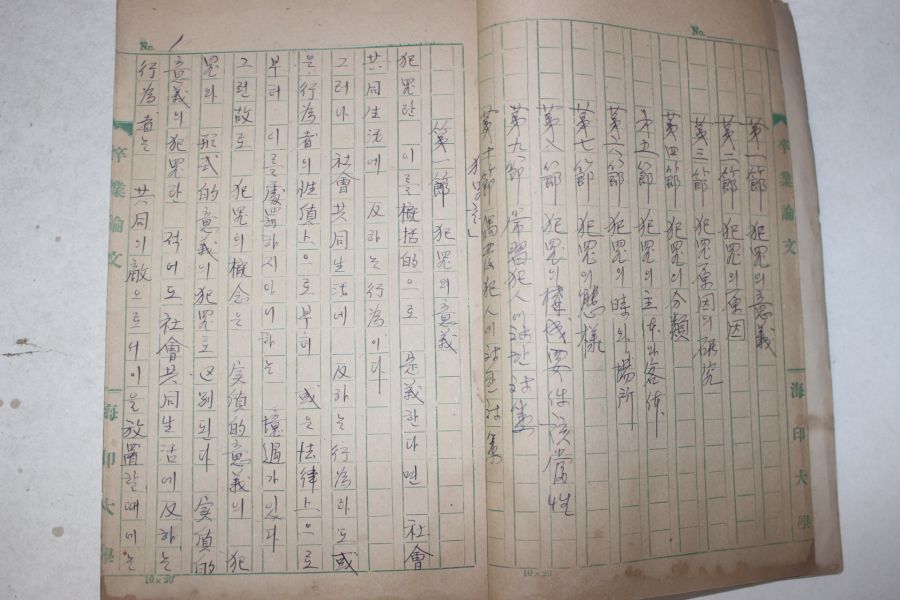 No.
卒業論文
第一節 犯罪의 意義
第二節 犯罪의 原因
第三節 犯罪原因의 研究
第四節 犯罪의 分類
第五節 犯罪의 主体와 客体
第六節 犯罪의 時와 場所
第七節 犯罪의 態樣
第八節 犯罪의 構成要件該當性
第九節 常習犯人에 対한 対策
第十節 偶發犯人에 対한 対策
海印大學
10×20
No. 1
「犯罪論」
第一節 犯罪의 意義
犯罪란 이를 概括的으로 定義한다면 社會
共同生活에 反하는 行為이다
그러나 社會共同生活에 反하는 行為라도 或
은 行為者의 性質上으로부터 或은 法律上으로
부터 이를 處罰하지 아니하는 境遇가 있다
그런 故로 犯罪의 概念은 実質的意義의 犯
罪와 形式的意義의 犯罪로 区別된다 実質的
意義의 犯罪란 적어도 社會共同生活에 反하는
行為 또는 共同의 敵으로서 이을 放置할 때에는
卒業論文
海印大學
10×20